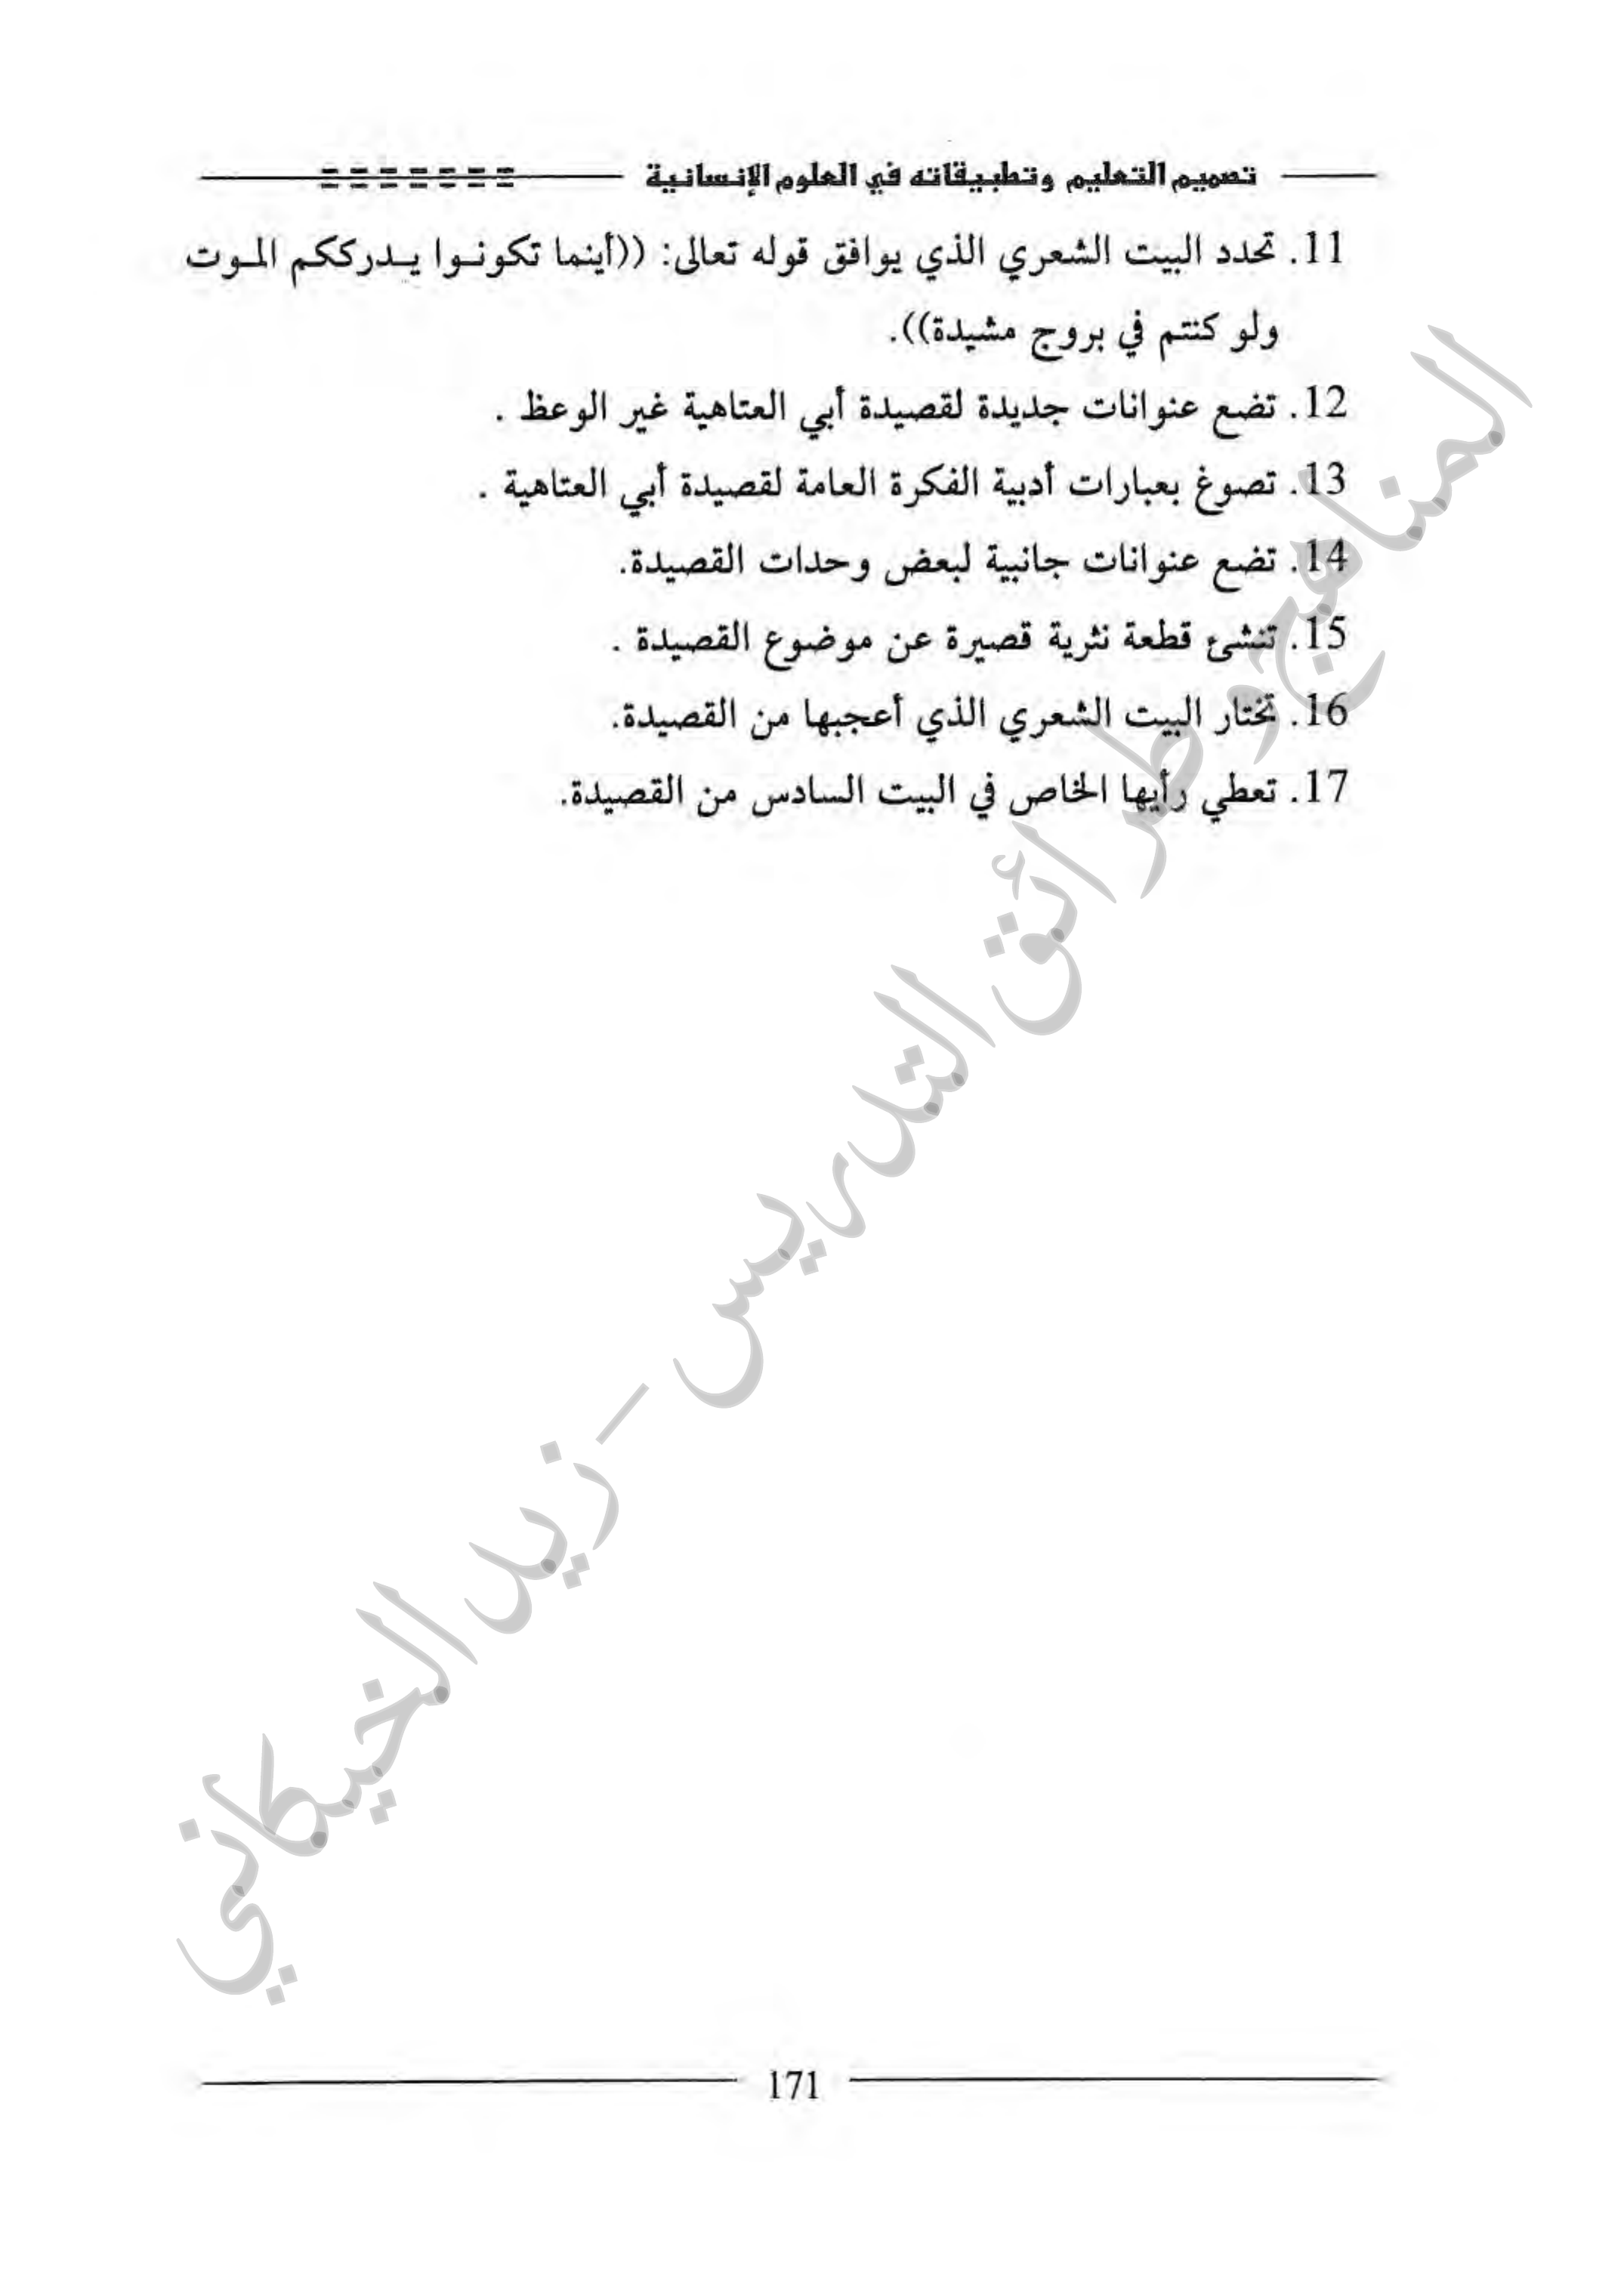 تصميم التعليم وتطبيقاته في العلوم الإنسانية
11. تحدد البيت الشعري الذي يوافق قوله تعالى: ((أينما تكونوا يدرككم الموت
ولو كنتم في بروج مشيدة)).
12. تضع عنوانات جديدة لقصيدة أبي العتاهية غير الوعظ .
13. تصوغ بعبارات أدبية الفكرة العامة لقصيدة أبي العتاهية .
14. تضع عنوانات جانبية لبعض وحدات القصيدة.
15. تنشئ قطعة نثرية قصيرة عن موضوع القصيدة .
16. تختار البيت الشعري الذي أعجبها من القصيدة.
17. تعطي رأيها الخاص في البيت السادس من القصيدة.
المناهج وطرائق التدريس - زيد الخيكاني
171